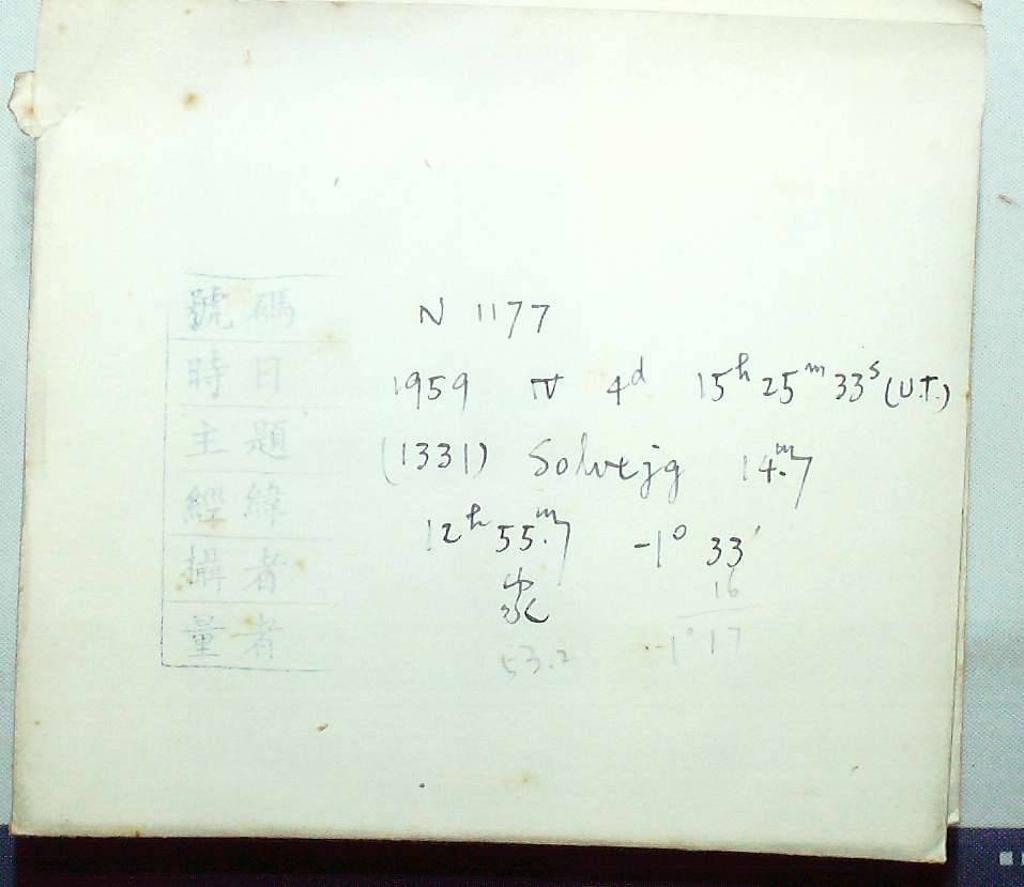 號碼 N 1177
時日 1959 IV 4d 15h 25m 33s (U.T.)
主題 (1331) Solvejg 14.m7
經緯 12h 55.m7 -1° 33′
攝者
16
量者 53.2 -1° 17